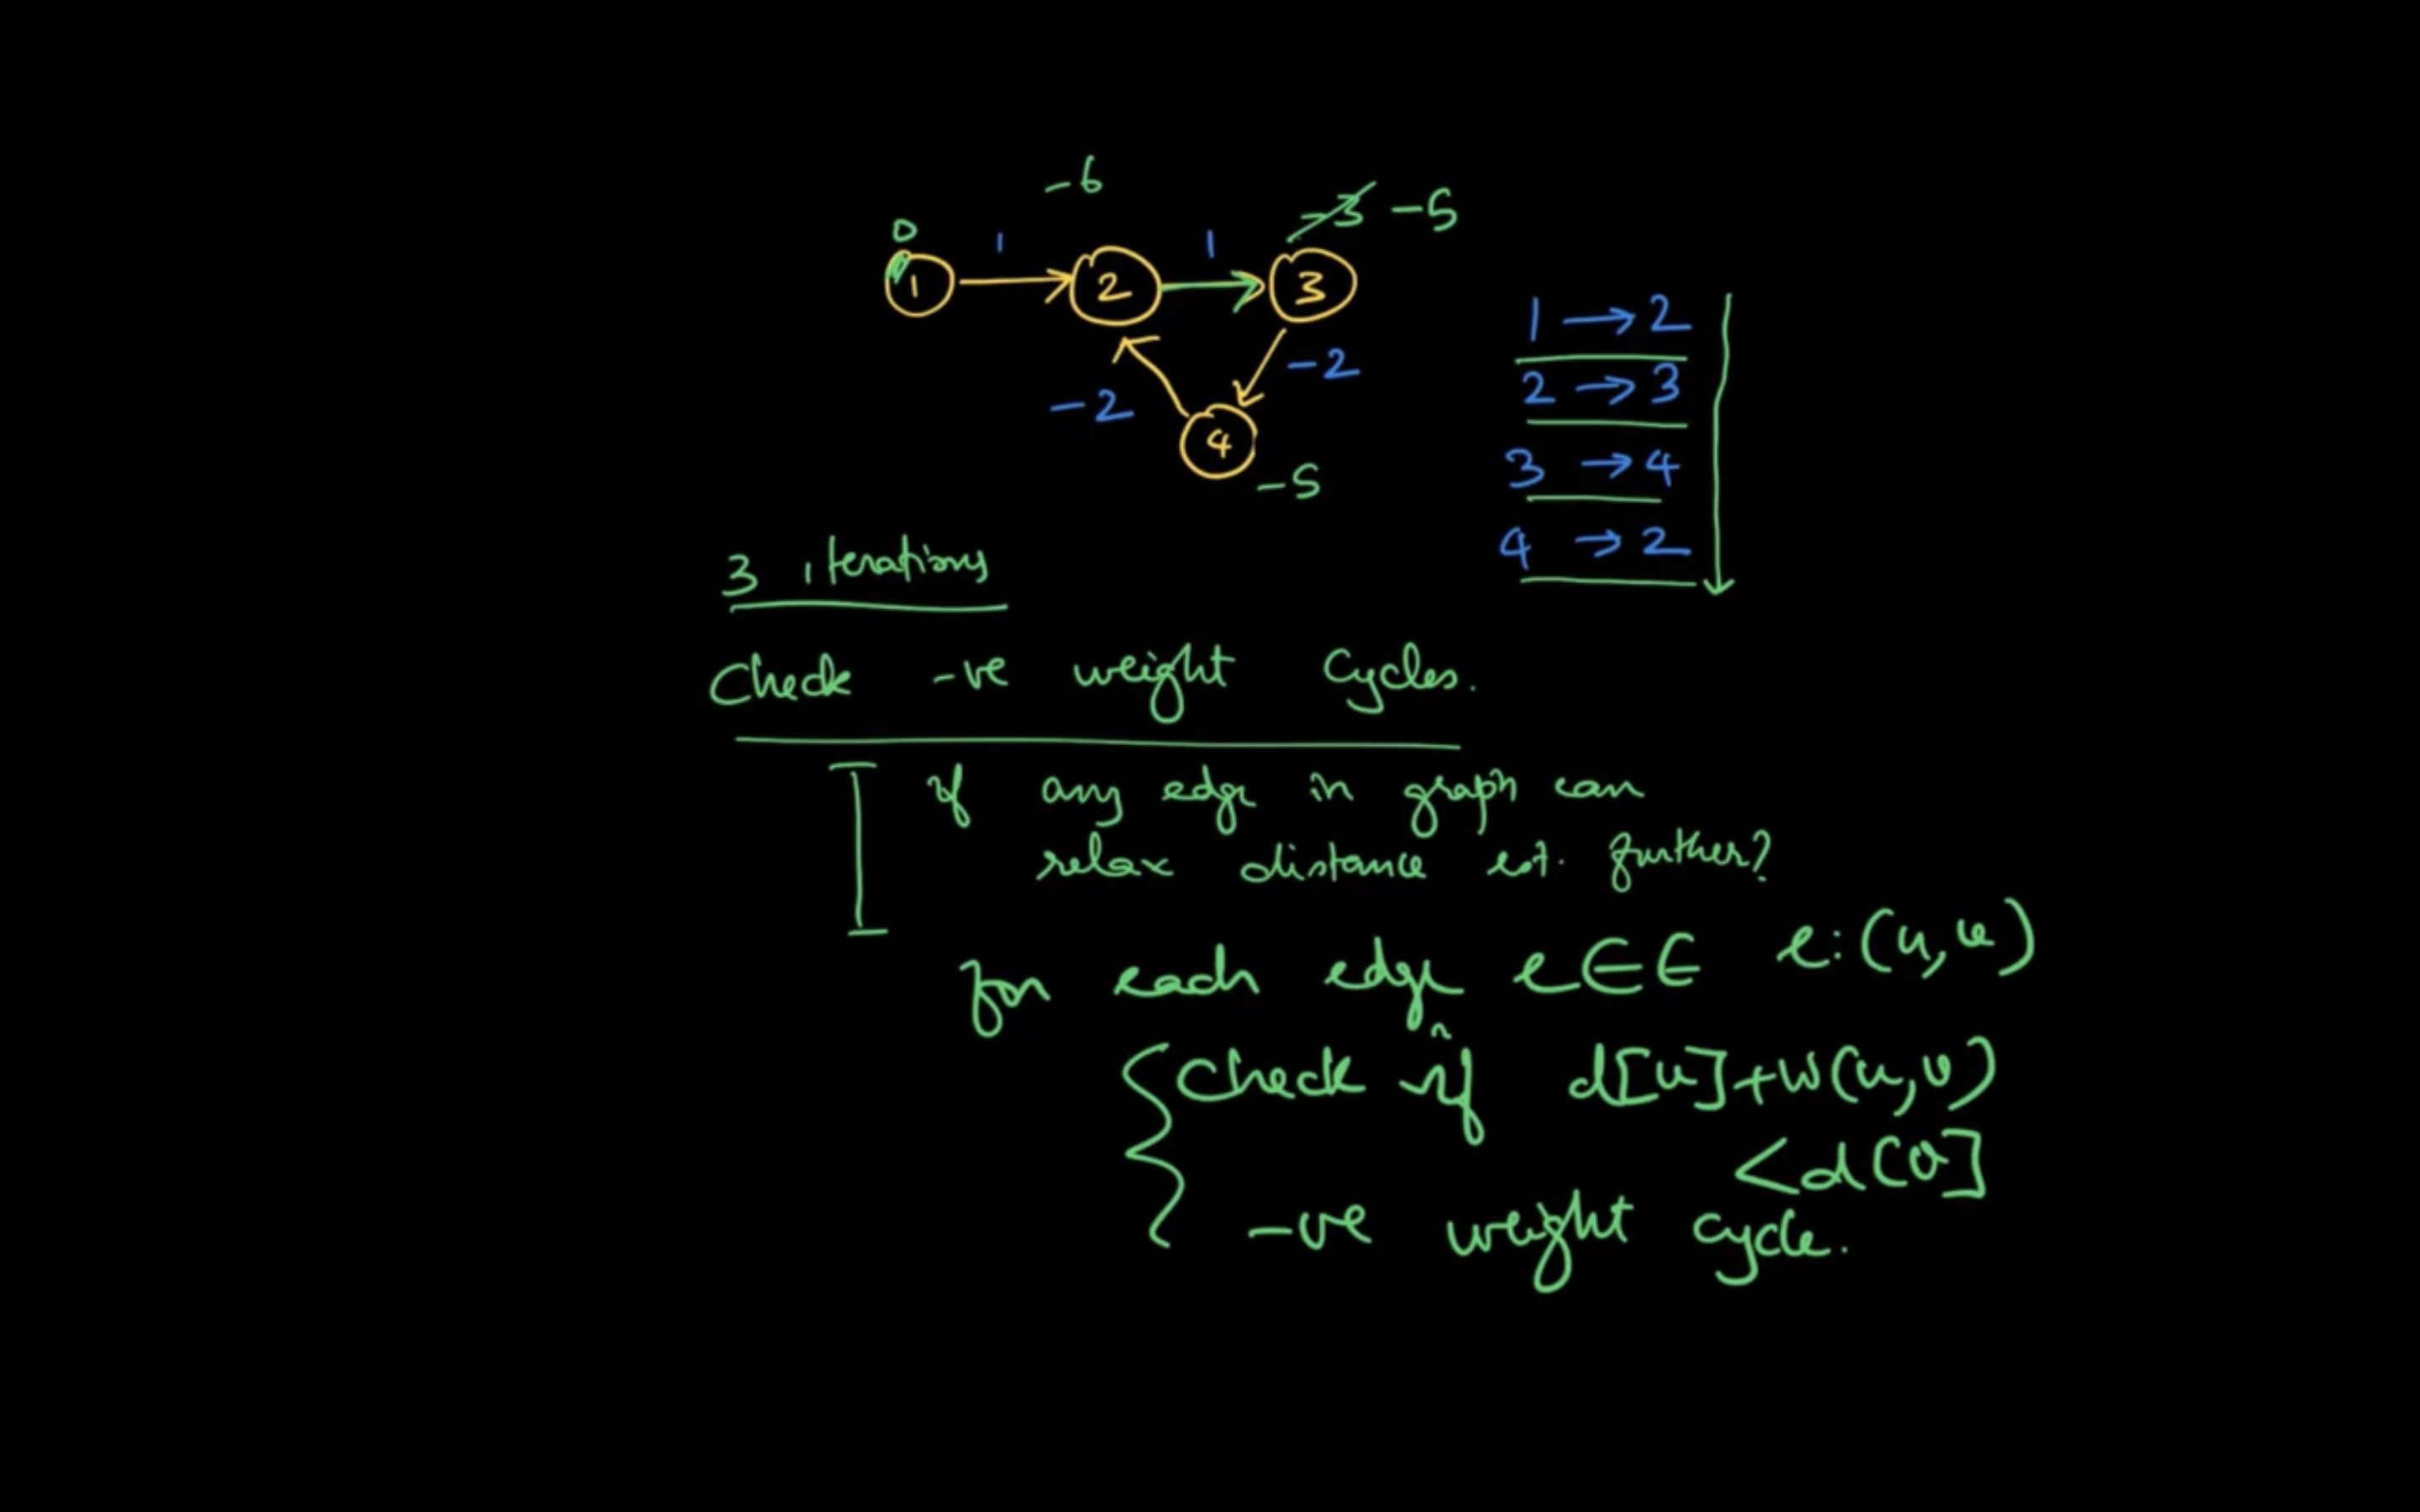 -6
-3 -5
0
1 1
1 2 3
-2
-2
4
-5
1 → 2
2 → 3
3 → 4
4 → 2
3 iterations
Check -ve weight Cycles.
if any edge in graph can
relax distance est. further?
for each edge e ∈ E e: (u, v)
Check if d[u] + w(u, v)
< d[v]
-ve weight cycle.